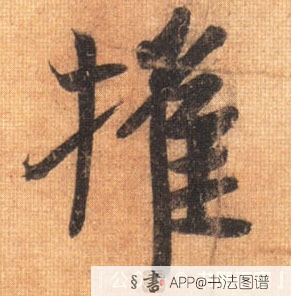 權
公
§書 APP@书法图谱